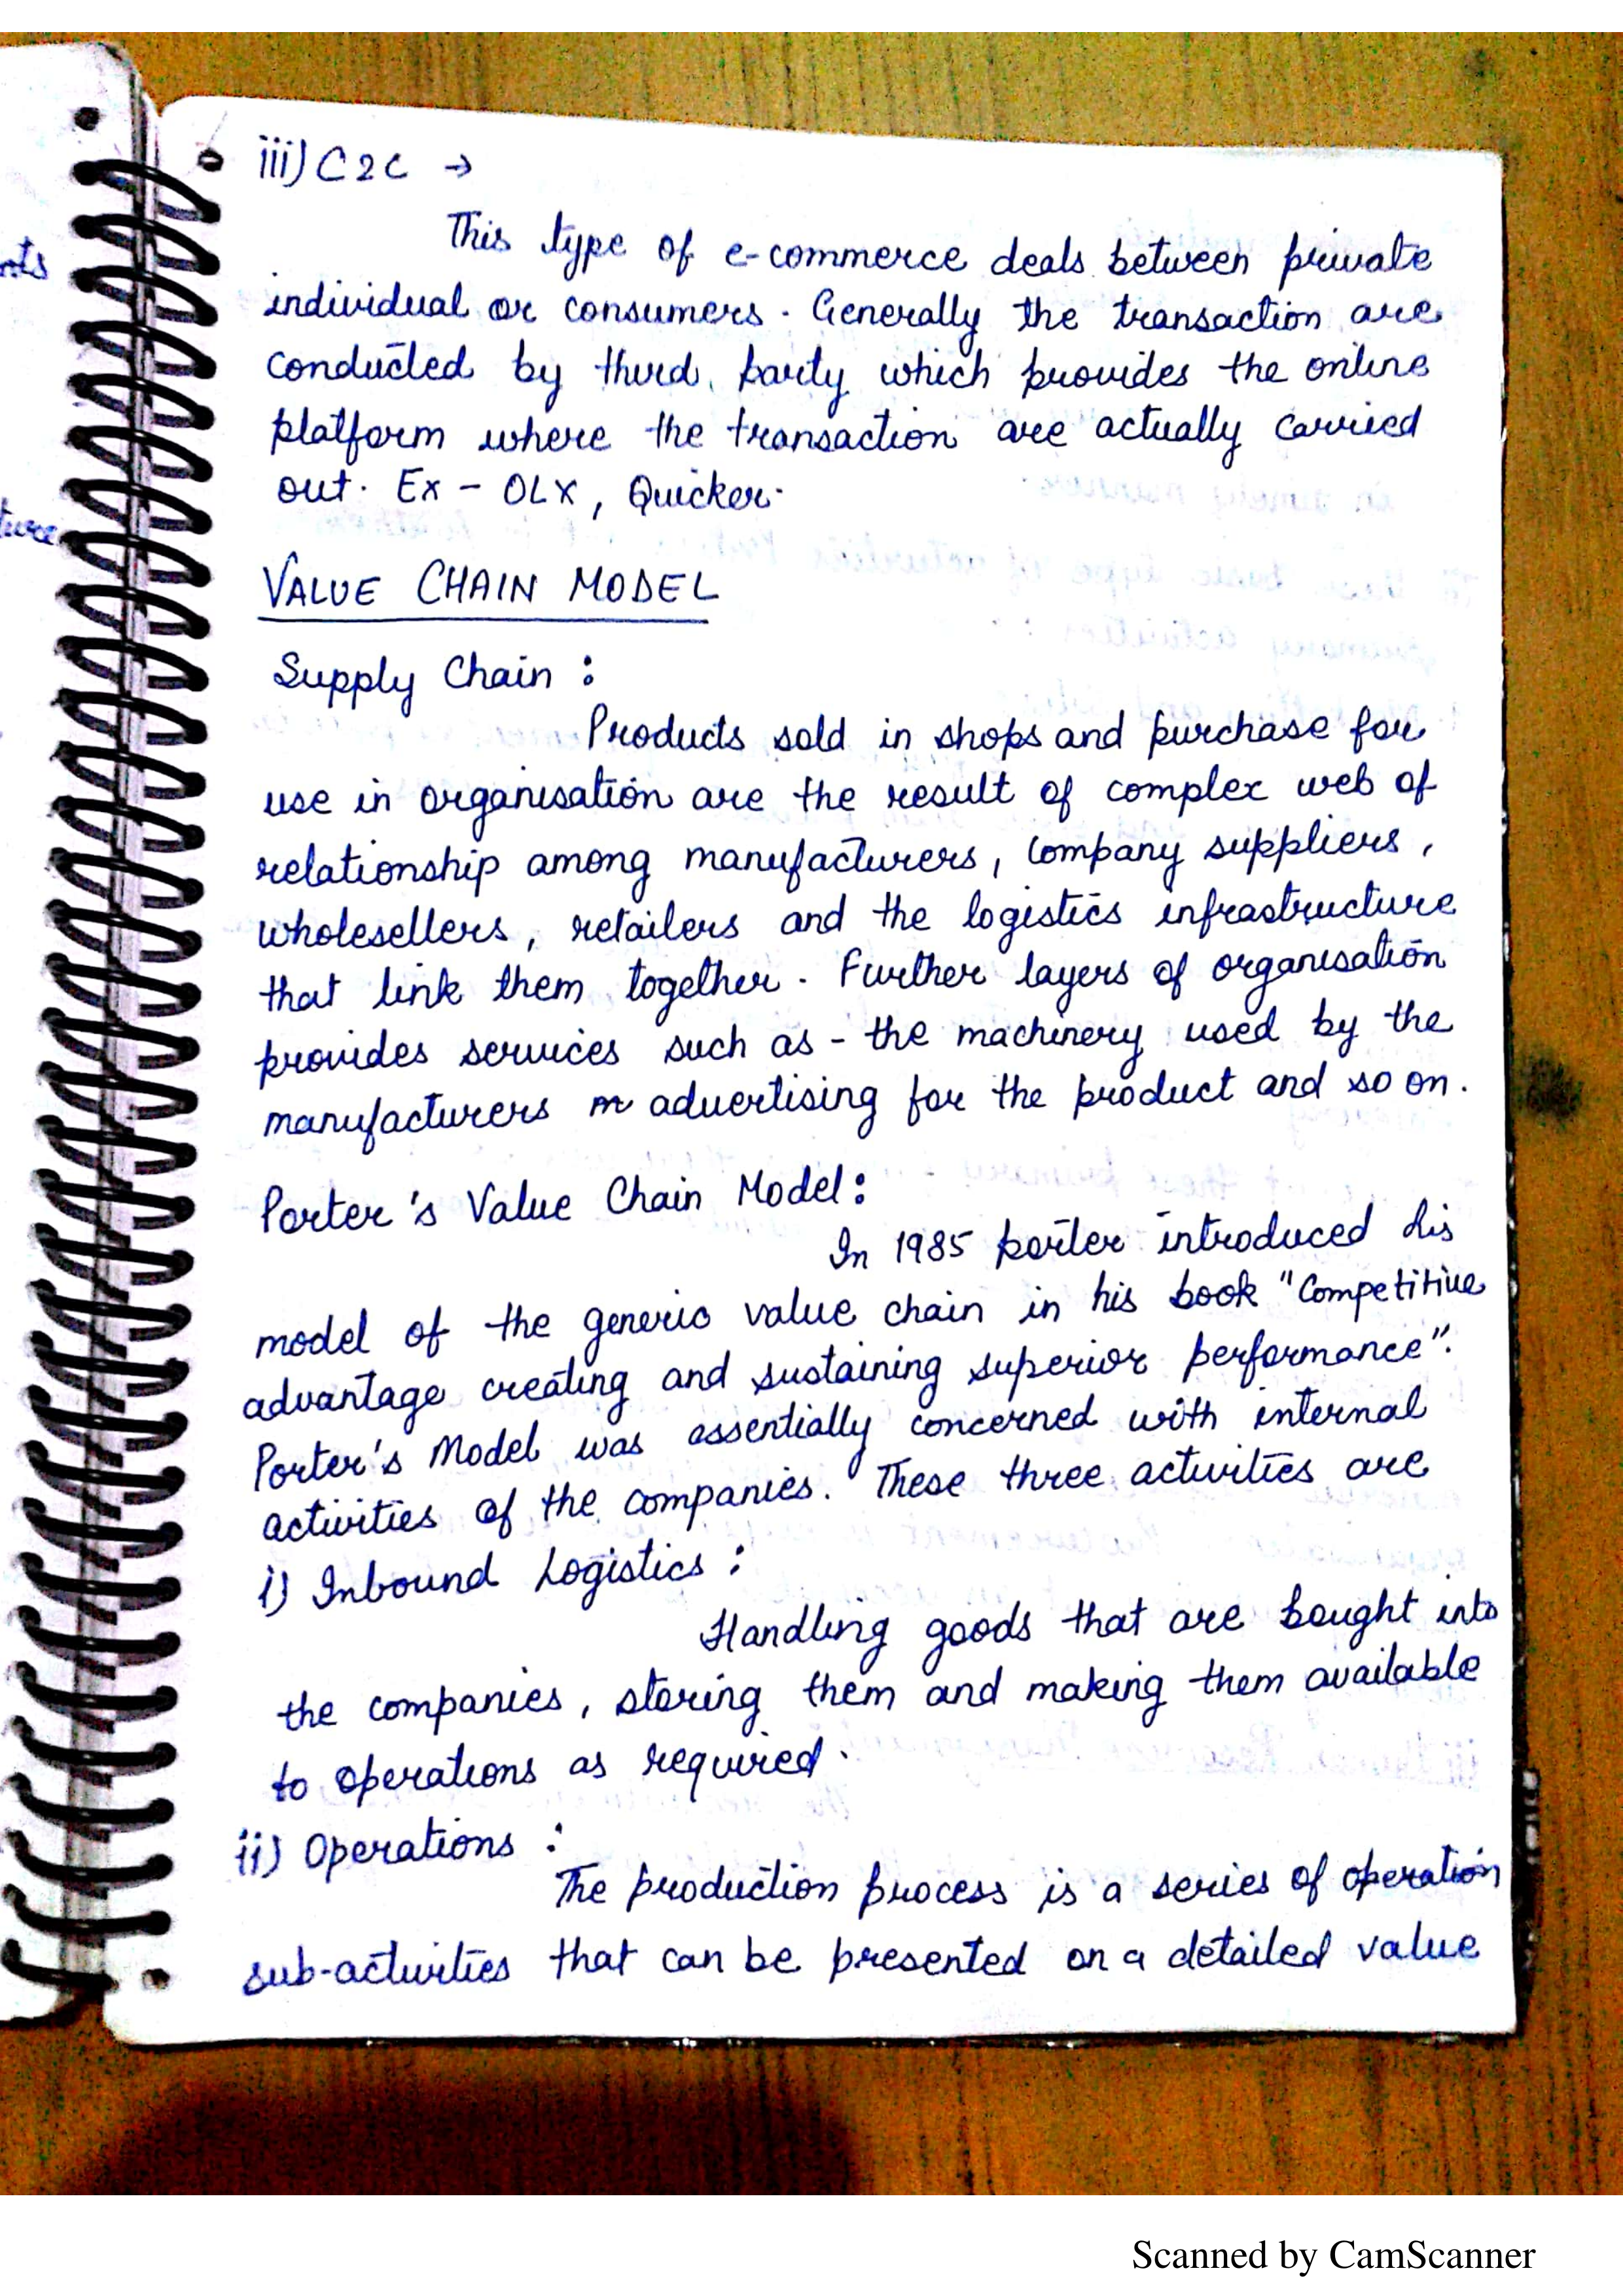 iii) C2C →
This type of e-commerce deals between private
individual or consumers. Generally the transaction are
conducted by third party which provides the online
platform where the transaction are actually carried
out. Ex - OLX, Quicker.
VALUE CHAIN MODEL
Supply Chain :
Products sold in shops and purchase for
use in organisation are the result of complex web of
relationship among manufacturers, company suppliers,
wholesellers, retailers and the logistics infrastructure
that link them together. Further layers of organisation
provides services such as - the machinery used by the
manufacturers advertising for the product and so on.
Porter's Value Chain Model :
In 1985 porter introduced his
model of the generic value chain in his book "Competitive
advantage creating and sustaining superior performance".
Porter's Model was essentially concerned with internal
activities of the companies. These three activities are
i) Inbound Logistics :
Handling goods that are bought into
the companies, storing them and making them available
to operations as required.
ii) Operations :
The production process is a series of operation
sub-activities that can be presented on a detailed value
nts
ture
Scanned by CamScanner